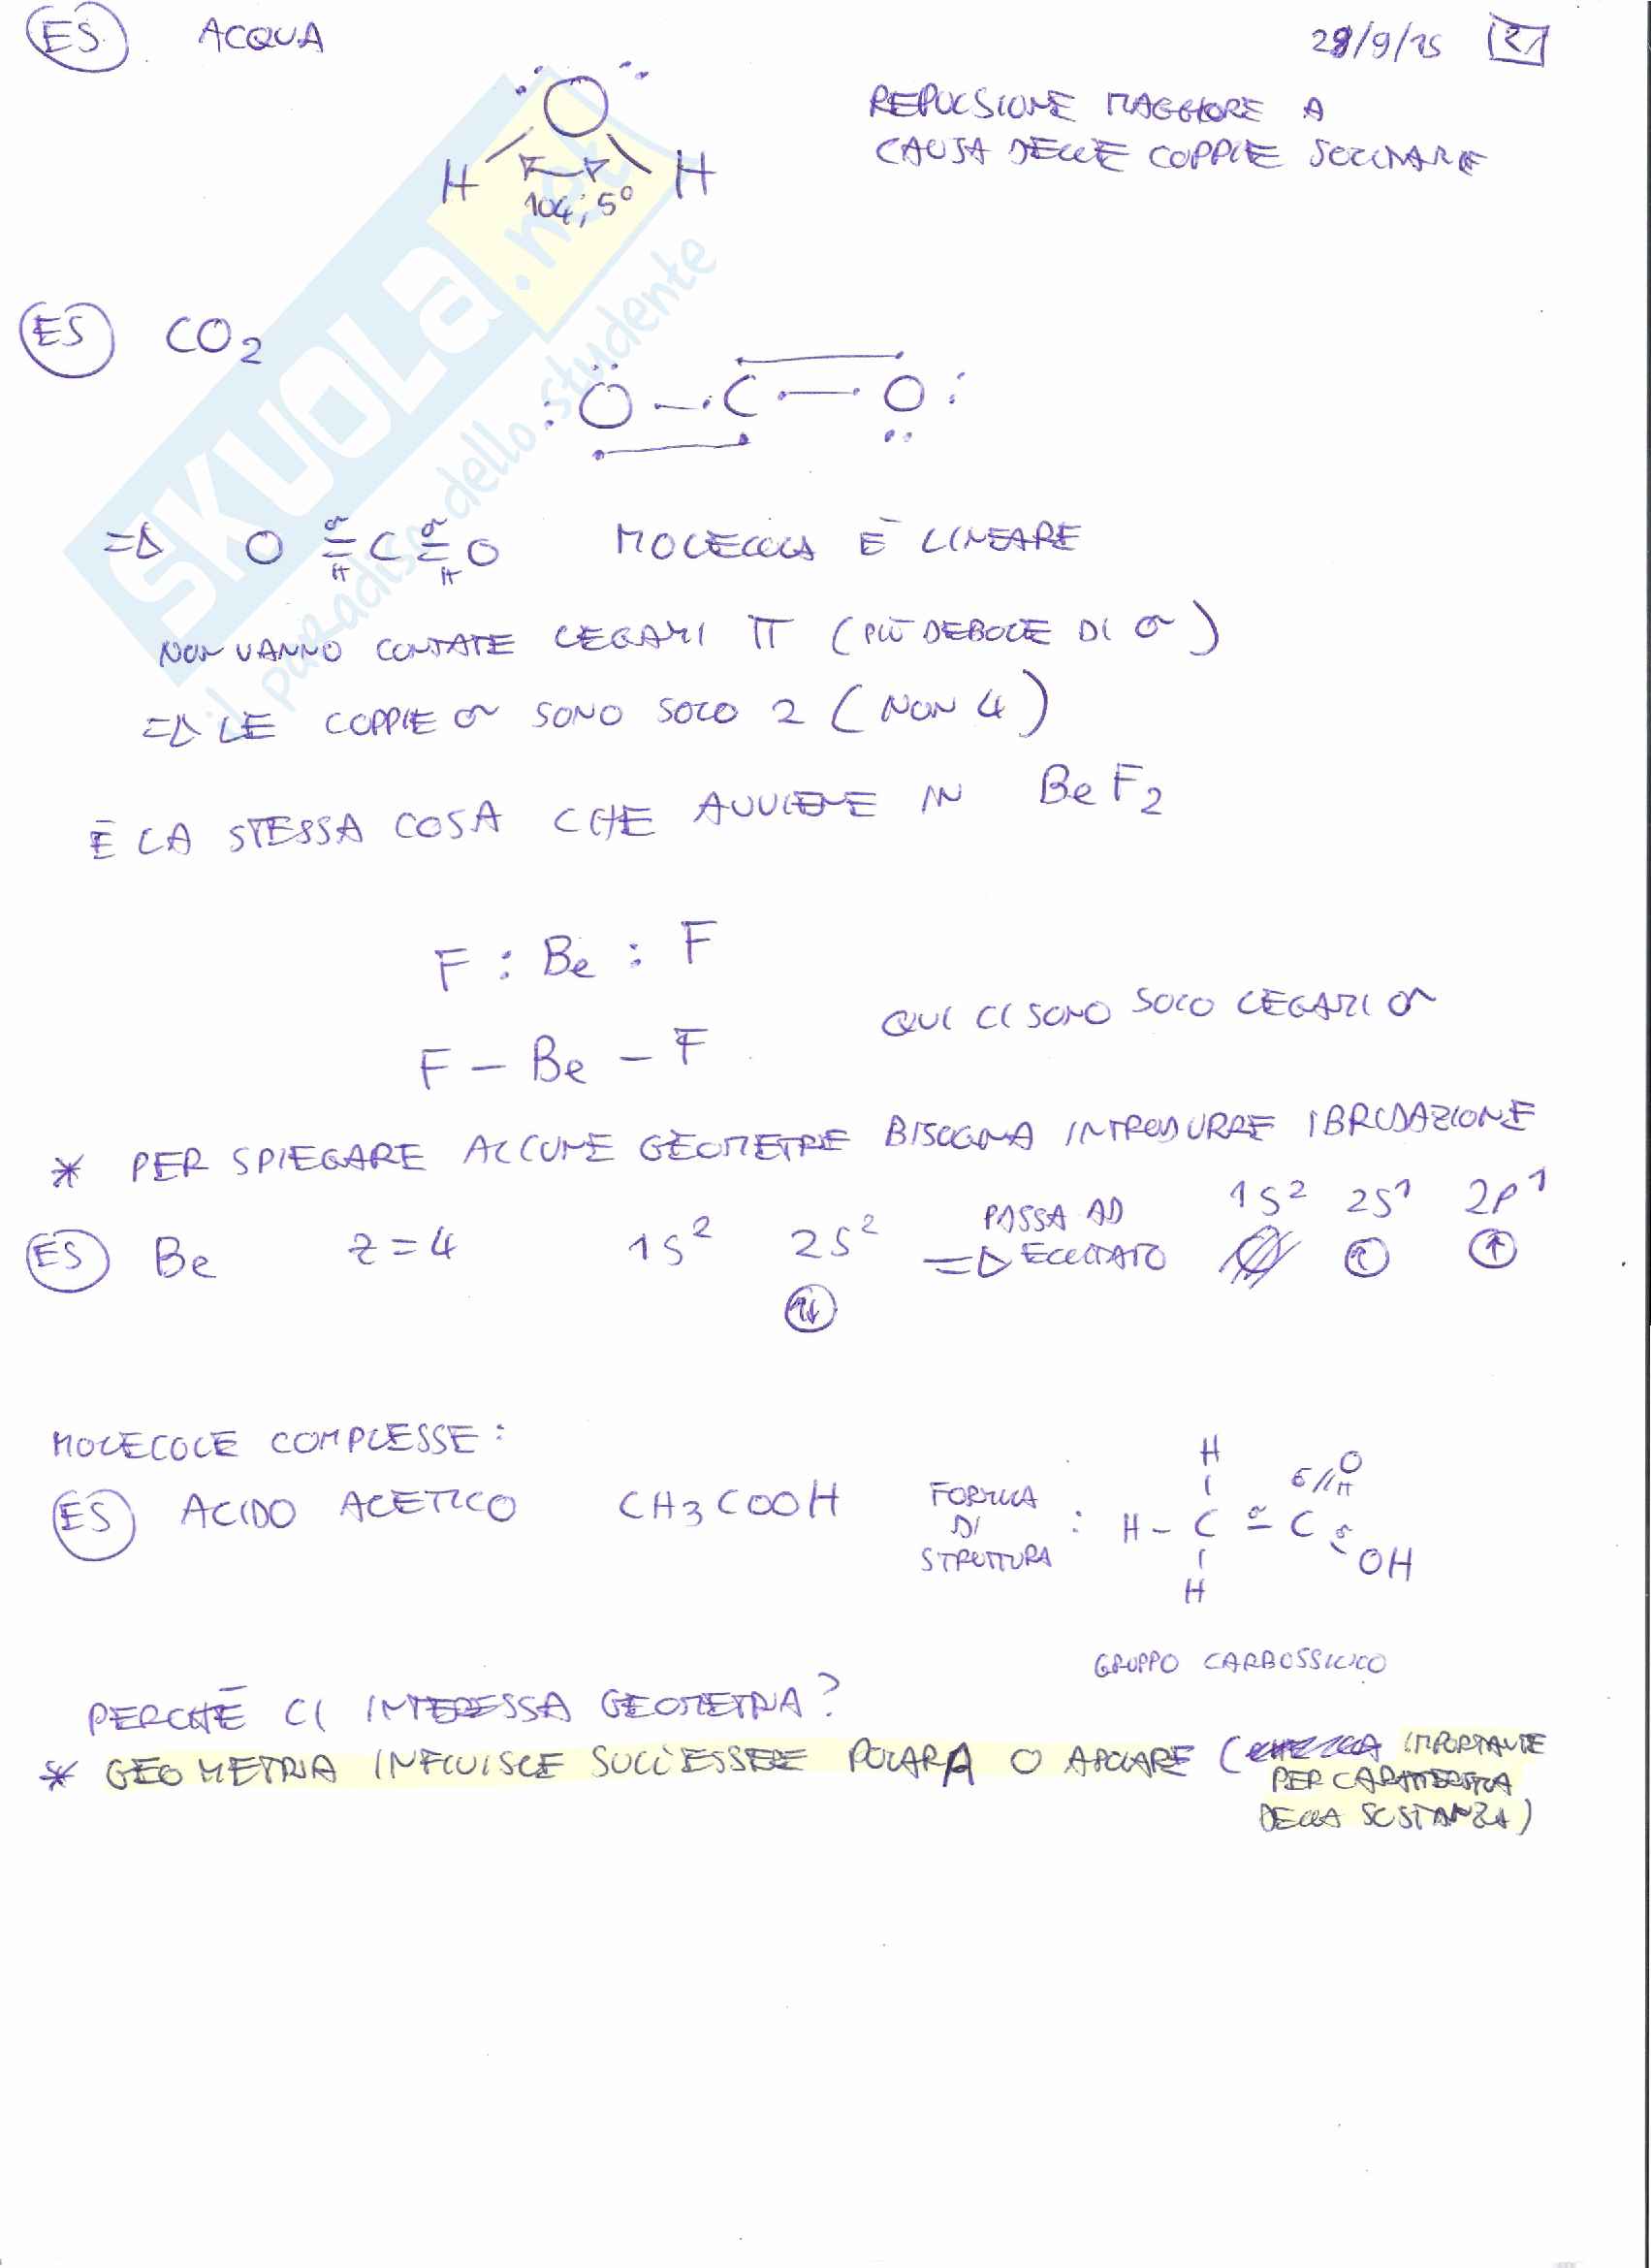 ES ACQUA
28/9/15 21
REPULSIONE MAGGIORE A
CAUSA DELLE COPPIE SOLITARIE
O
H H
104,5°
ES CO2
:Ö—C—O:
=> O σ= π C σ= π O MOLECOLA È LINEARE
NON VANNO CONTATE LEGAMI π (PIÙ DEBOLE DI σ)
=> LE COPPIE σ SONO SOLO 2 (NON 4)
È LA STESSA COSA CHE AVVIENE IN BeF2
F : Be : F
QUI CI SONO SOLO LEGAMI σ
F – Be – F
* PER SPIEGARE ALCUNE GEOMETRIE BISOGNA INTRODURRE IBRIDAZIONE
ES Be z=4 1s² 2s² => PASSA AD ECCITATO 1s² 2s¹ 2p¹
MOLECOLE COMPLESSE:
ES ACIDO ACETICO CH3COOH FORMULA DI STRUTTURA :
H O
σ // π
H – C σ– C σ
OH
H
GRUPPO CARBOSSILICO
PERCHÈ CI INTERESSA GEOMETRIA?
* GEOMETRIA INFLUISCE SULL'ESSERE POLARA O APOLARE ( IMPORTANTE
PER CARATTERISTICA
DELLA SOSTANZA)
SKUOLA.net
il paradiso dello studente